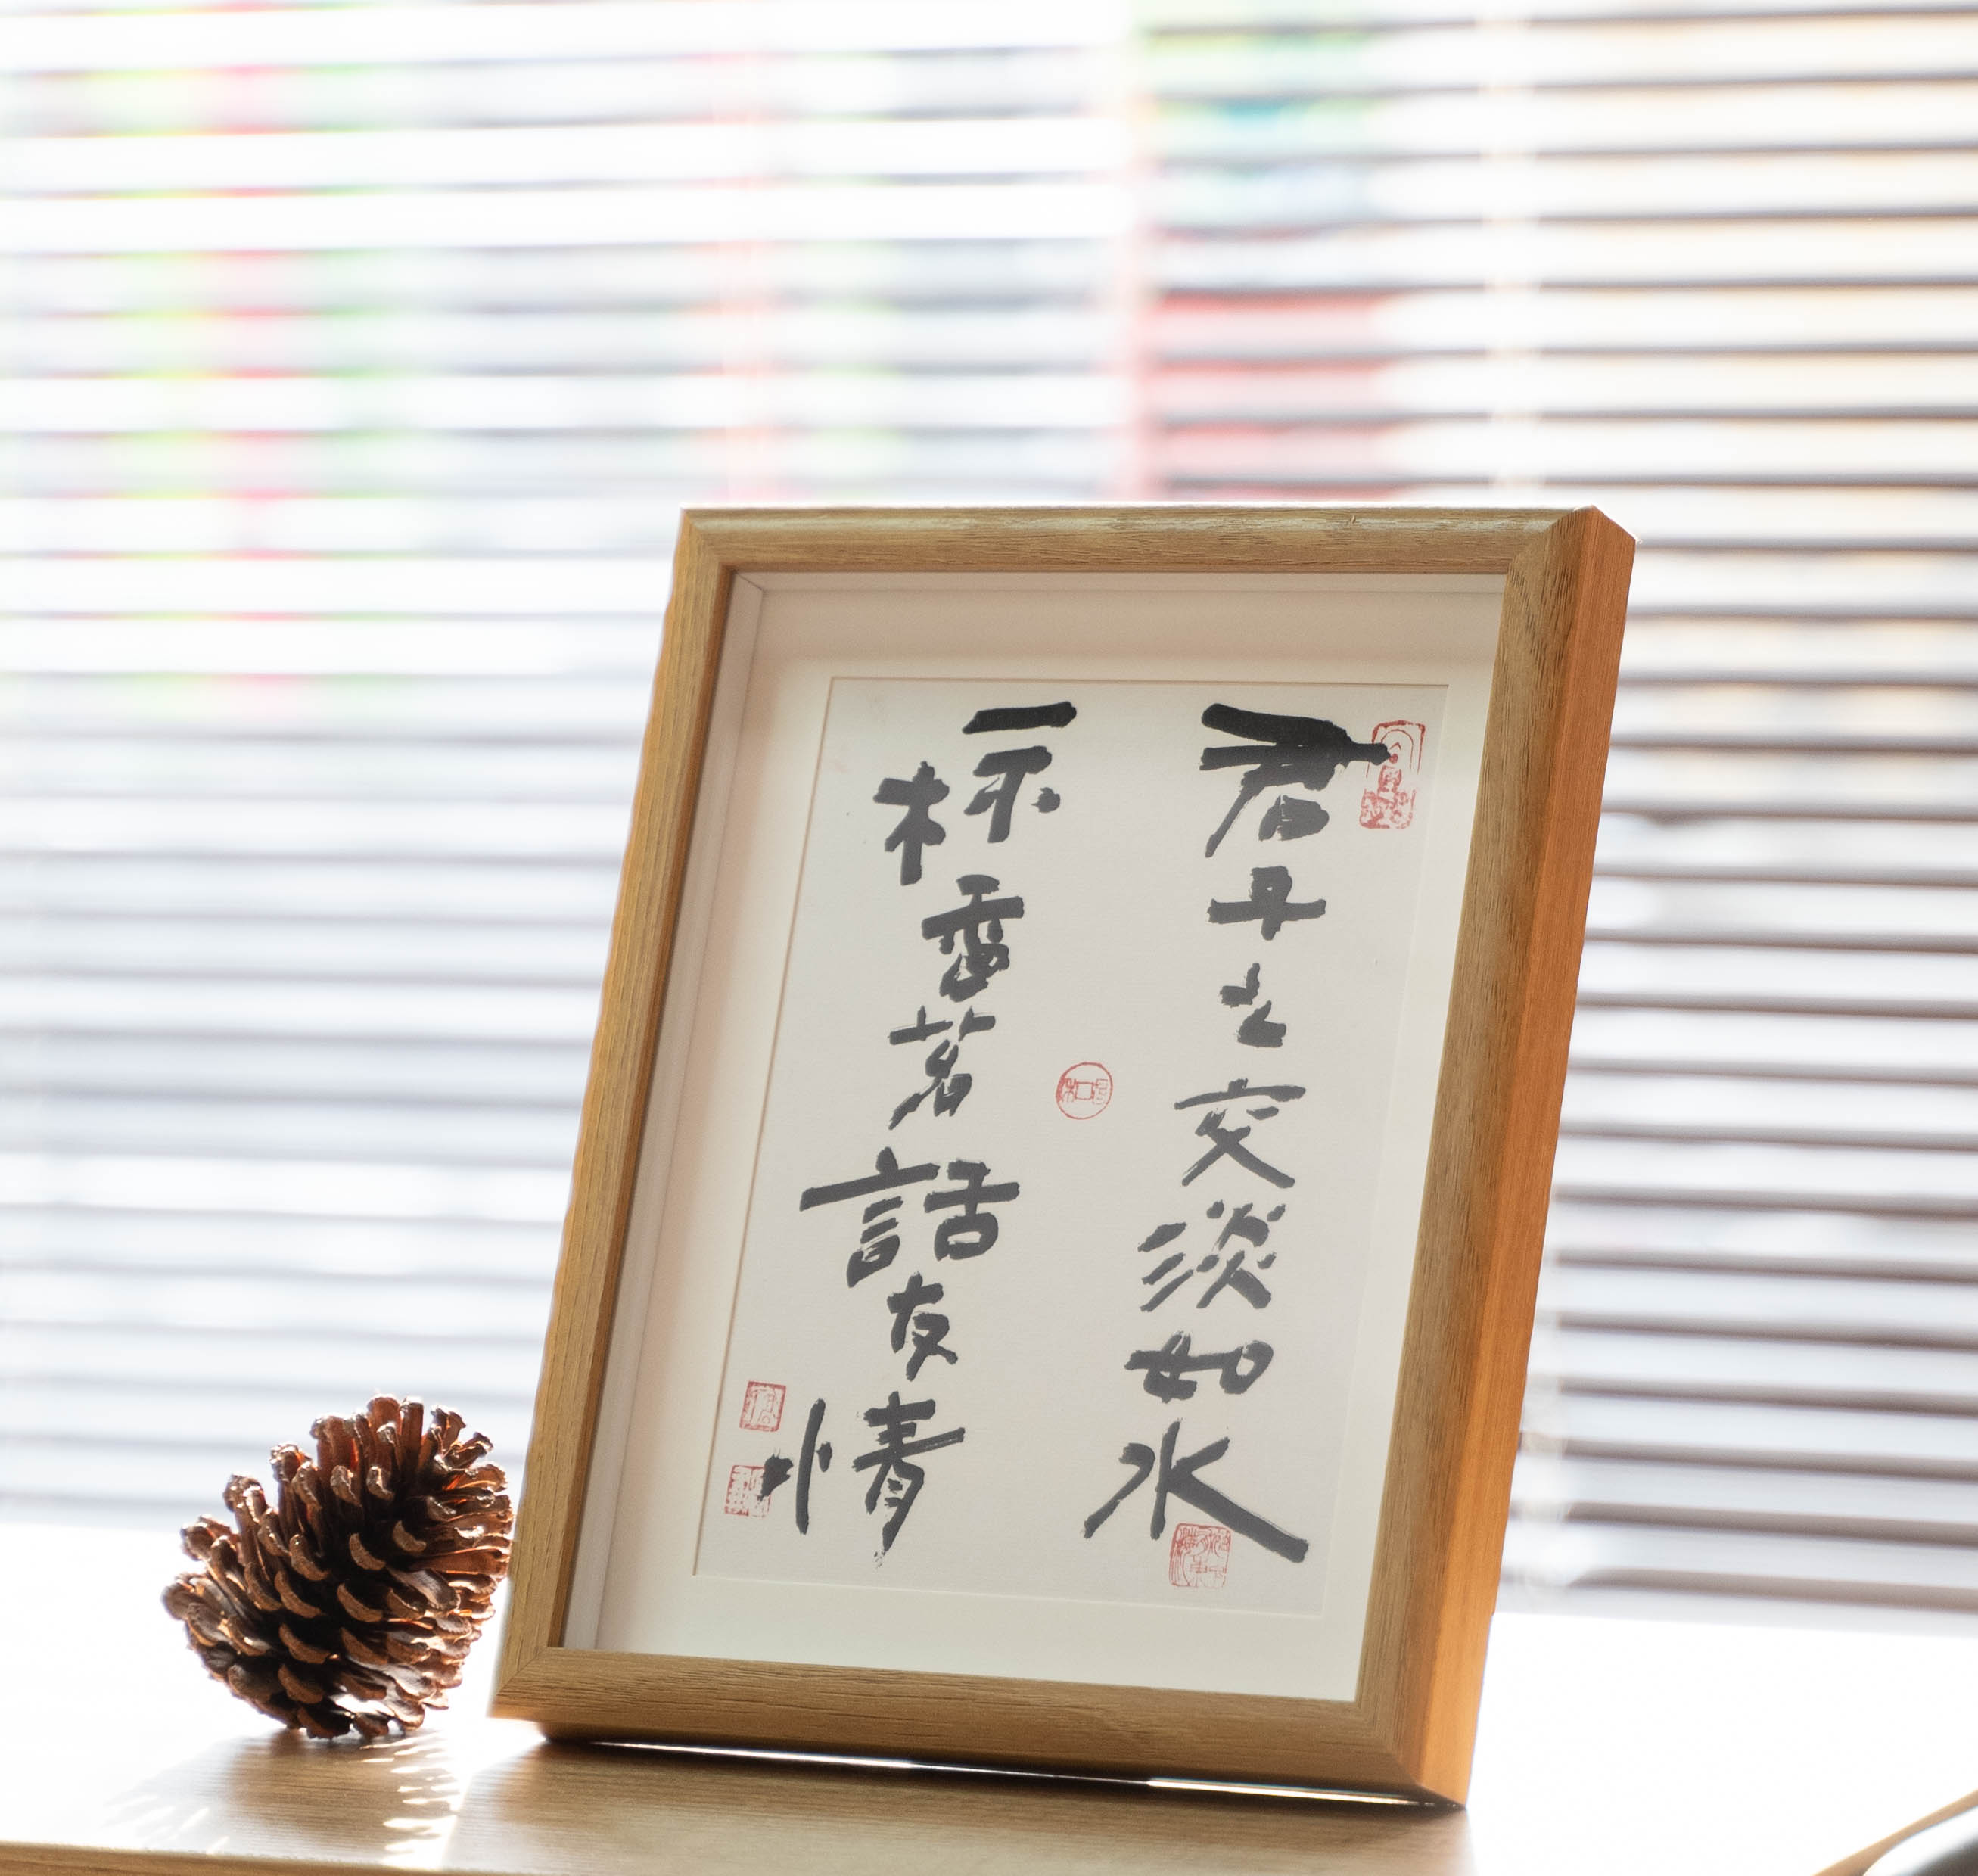 君子之交淡如水
一杯香茗話友情